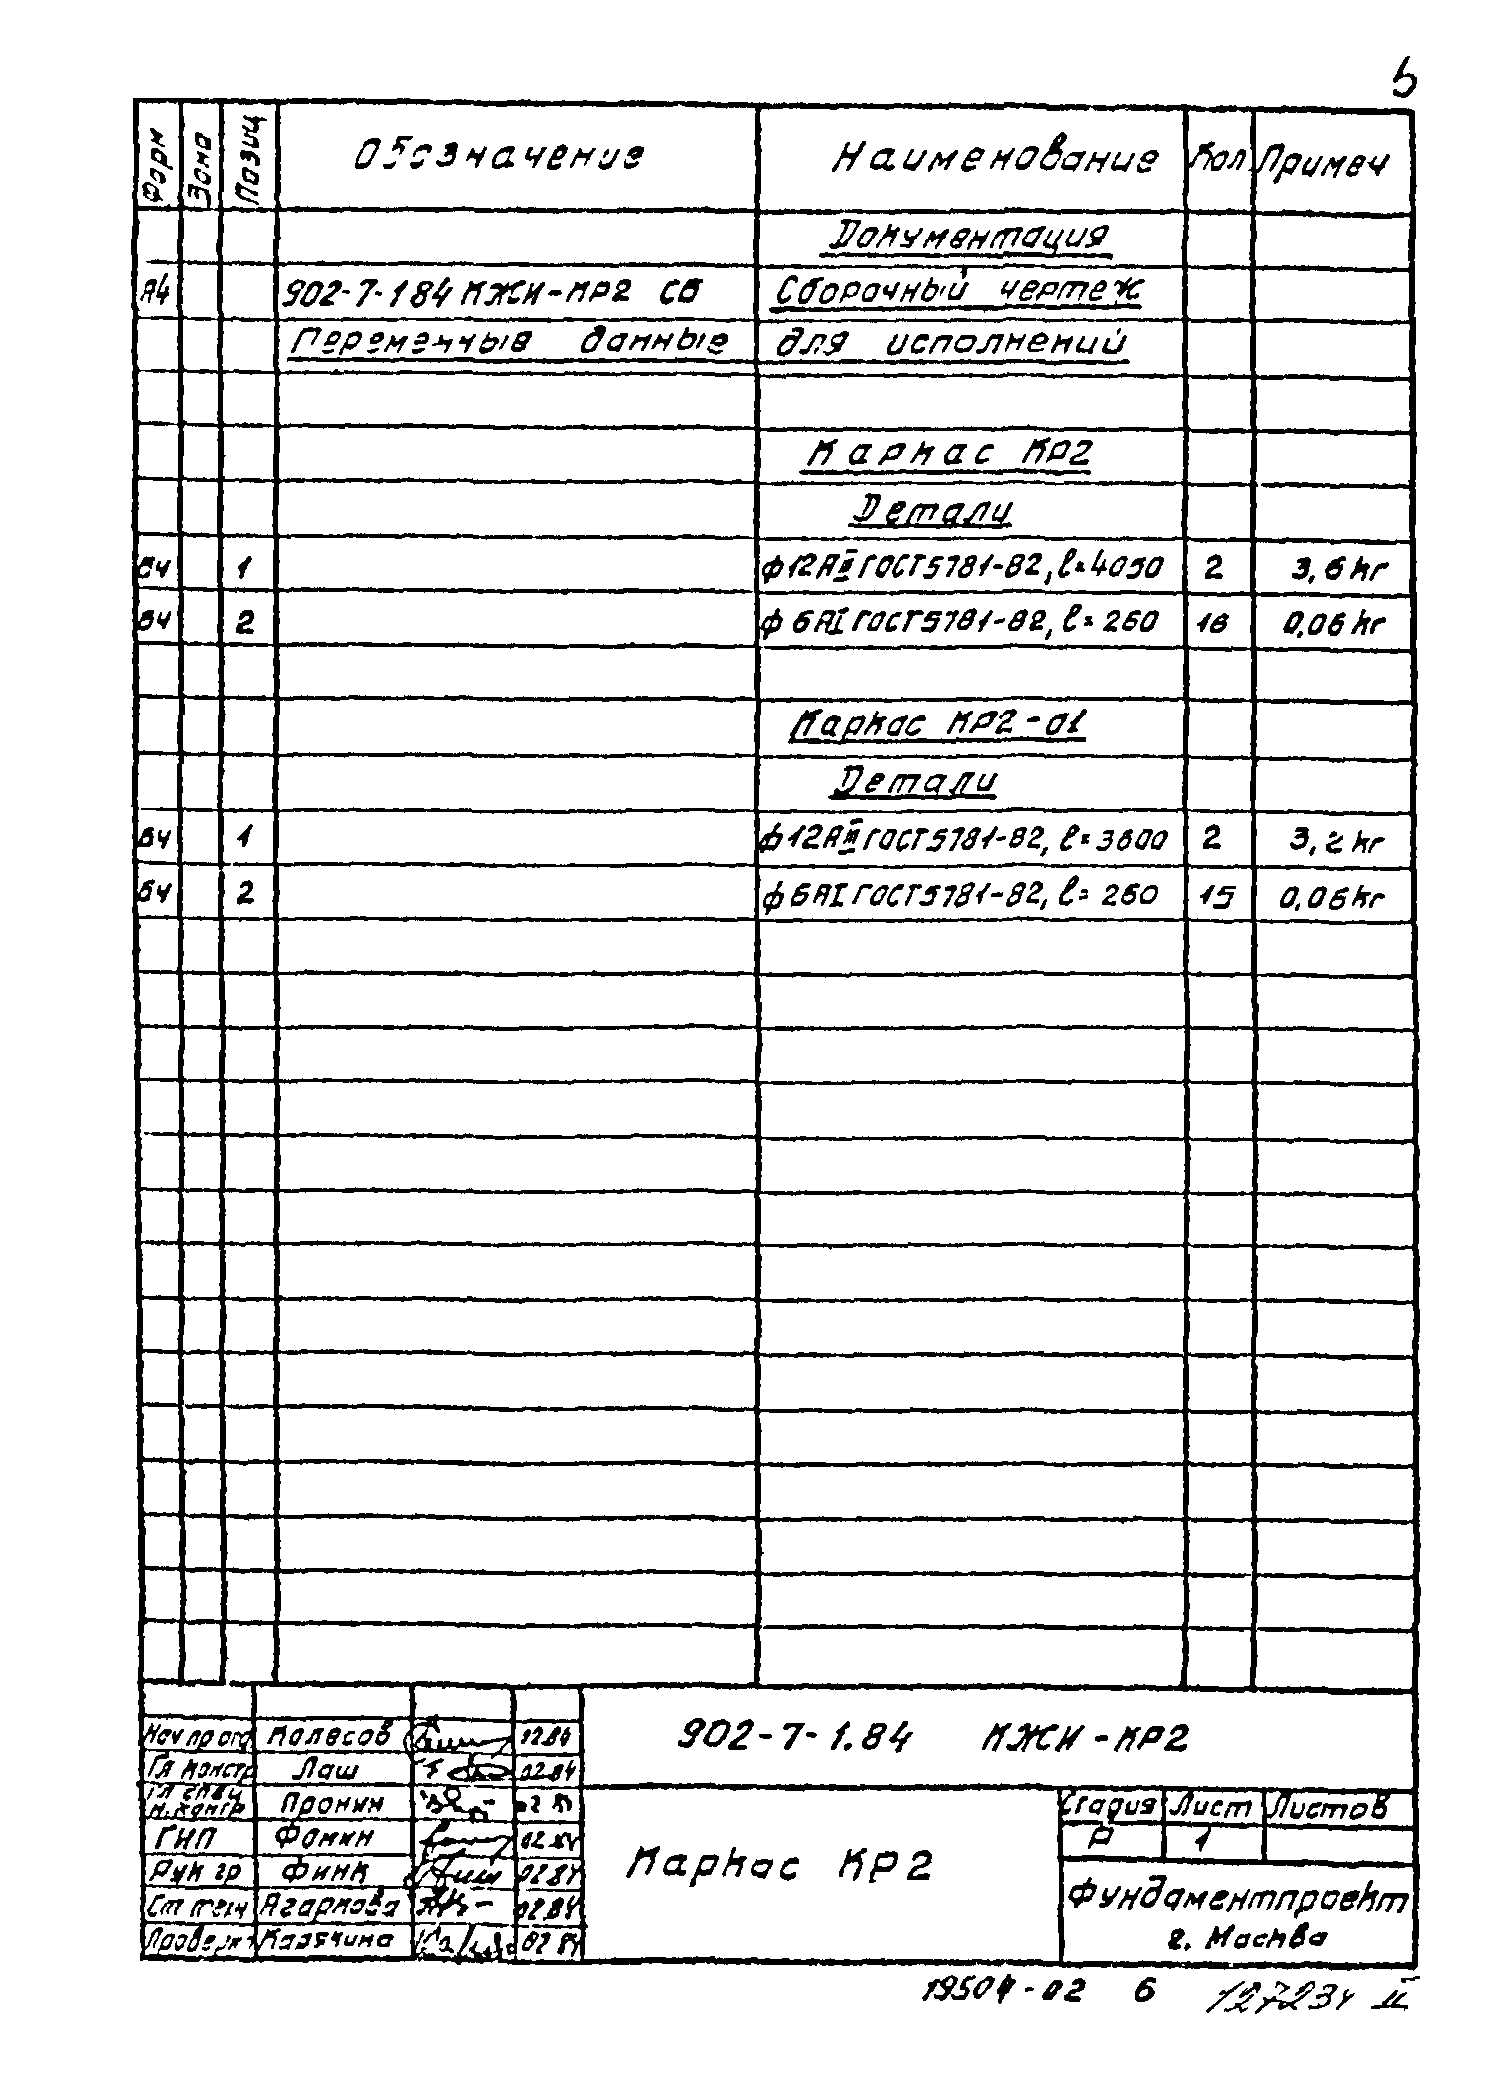 5
Форм Зона Позиц Обозначение Наименование Кол Примеч
Документация
А4 902-7-184 КЖИ-КР2 СБ Сборочный чертеж
Переменные данные для исполнений
Каркас КР2
Детали
БЧ 1 ф12АIII ГОСТ5781-82, l=4050 2 3,6 кг
БЧ 2 ф6АI ГОСТ5781-82, l=260 16 0,06 кг
Каркас КР2-01
Детали
БЧ 1 ф12АIII ГОСТ5781-82, l=3600 2 3,2 кг
БЧ 2 ф6АI ГОСТ5781-82, l=260 15 0,06 кг
Нач пр отд Колесов 02.84
Гл констр Лаш 02.84
Гл спец н.контр Пронин 02.84
ГИП Фомин 02.84
Рук гр Финк 02.84
Ст техн Агаркова 02.84
Проверил 02.84
902-7-1.84 КЖИ-КР2
Каркас КР2
Стадия Лист Листов
Р 1
Фундаментпроект
г. Москва
19504-02 6 127234 II